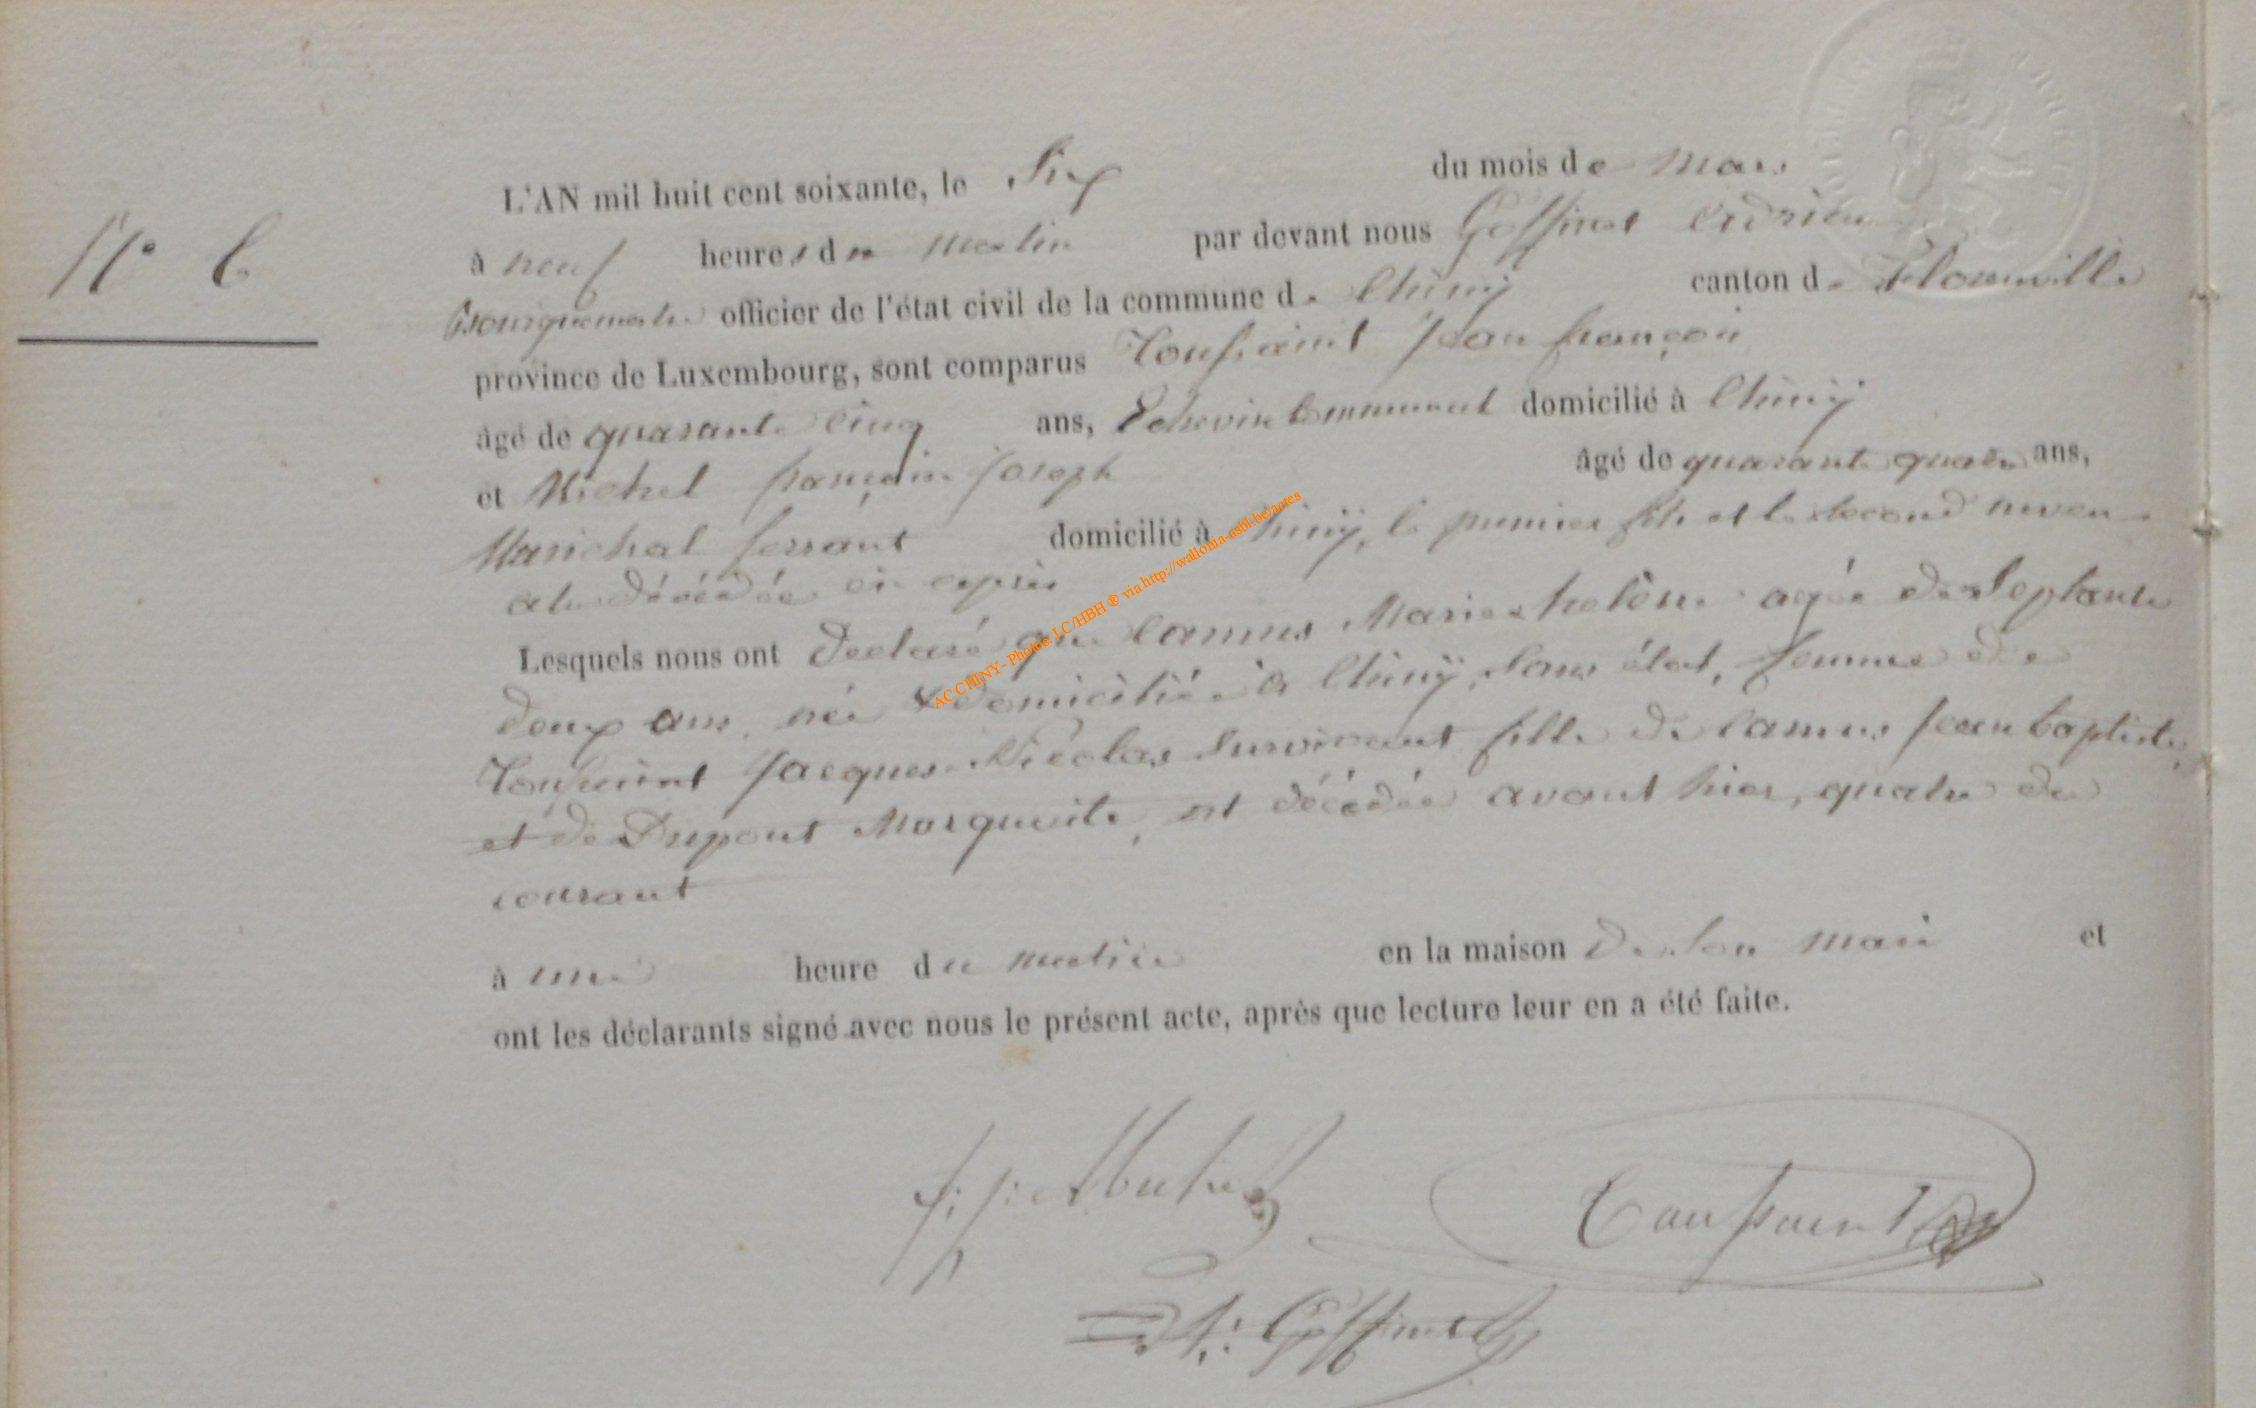 N° 6
L'AN mil huit cent soixante, le Six du mois de Mars
à neuf heures du Matin par devant nous Goffinet Adrien
Bourguemestre officier de l'état civil de la commune de Chiny canton de Florenville
province de Luxembourg, sont comparus Toussaint Jean françois
âgé de quarante cinq ans, Echevin Communal domicilié à Chiny
et Michel françois Joseph âgé de quarante quatre ans,
Marichal ferrant domicilié à Chiny, le premier fils et le second neveu
a la décédée ci après
Lesquels nous ont declaré que Camus Marie helène agée de Septante
deux ans, née & domicilié à Chiny, Sans état, femme de
Toussaint Jacques Nicolas Survivant fille de Camus Jean baptiste,
et de Dupont Marguerite, est décédée avant hier, quatre du
courant
à une heure du matin en la maison de Son Mari et
ont les déclarants signé avec nous le présent acte, après que lecture leur en a été faite.
f: j: Michel Toussaint
A: Goffinet
AC CHINY - Photos LC/HBH ® via http://wallonia-asbl.be/actes